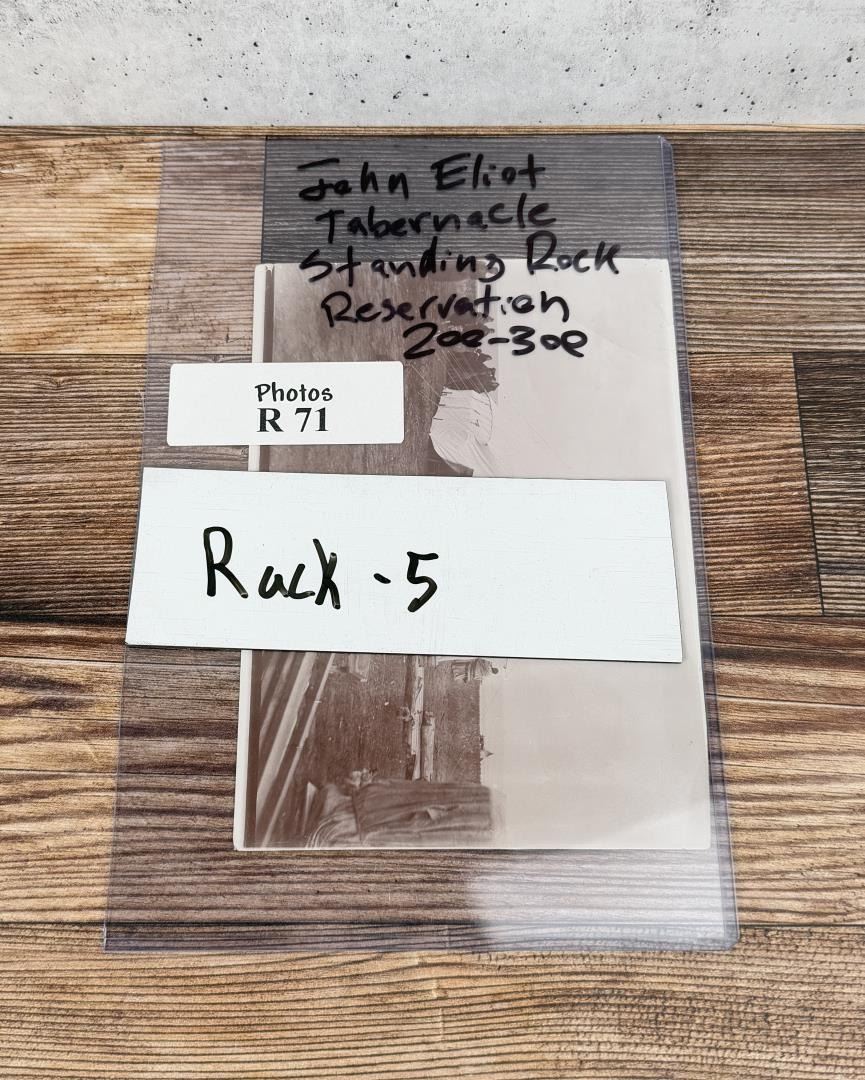 John Eliot
Tabernacle
Standing Rock
Reservation
20e-30e
Photos
R 71
Rack - 5